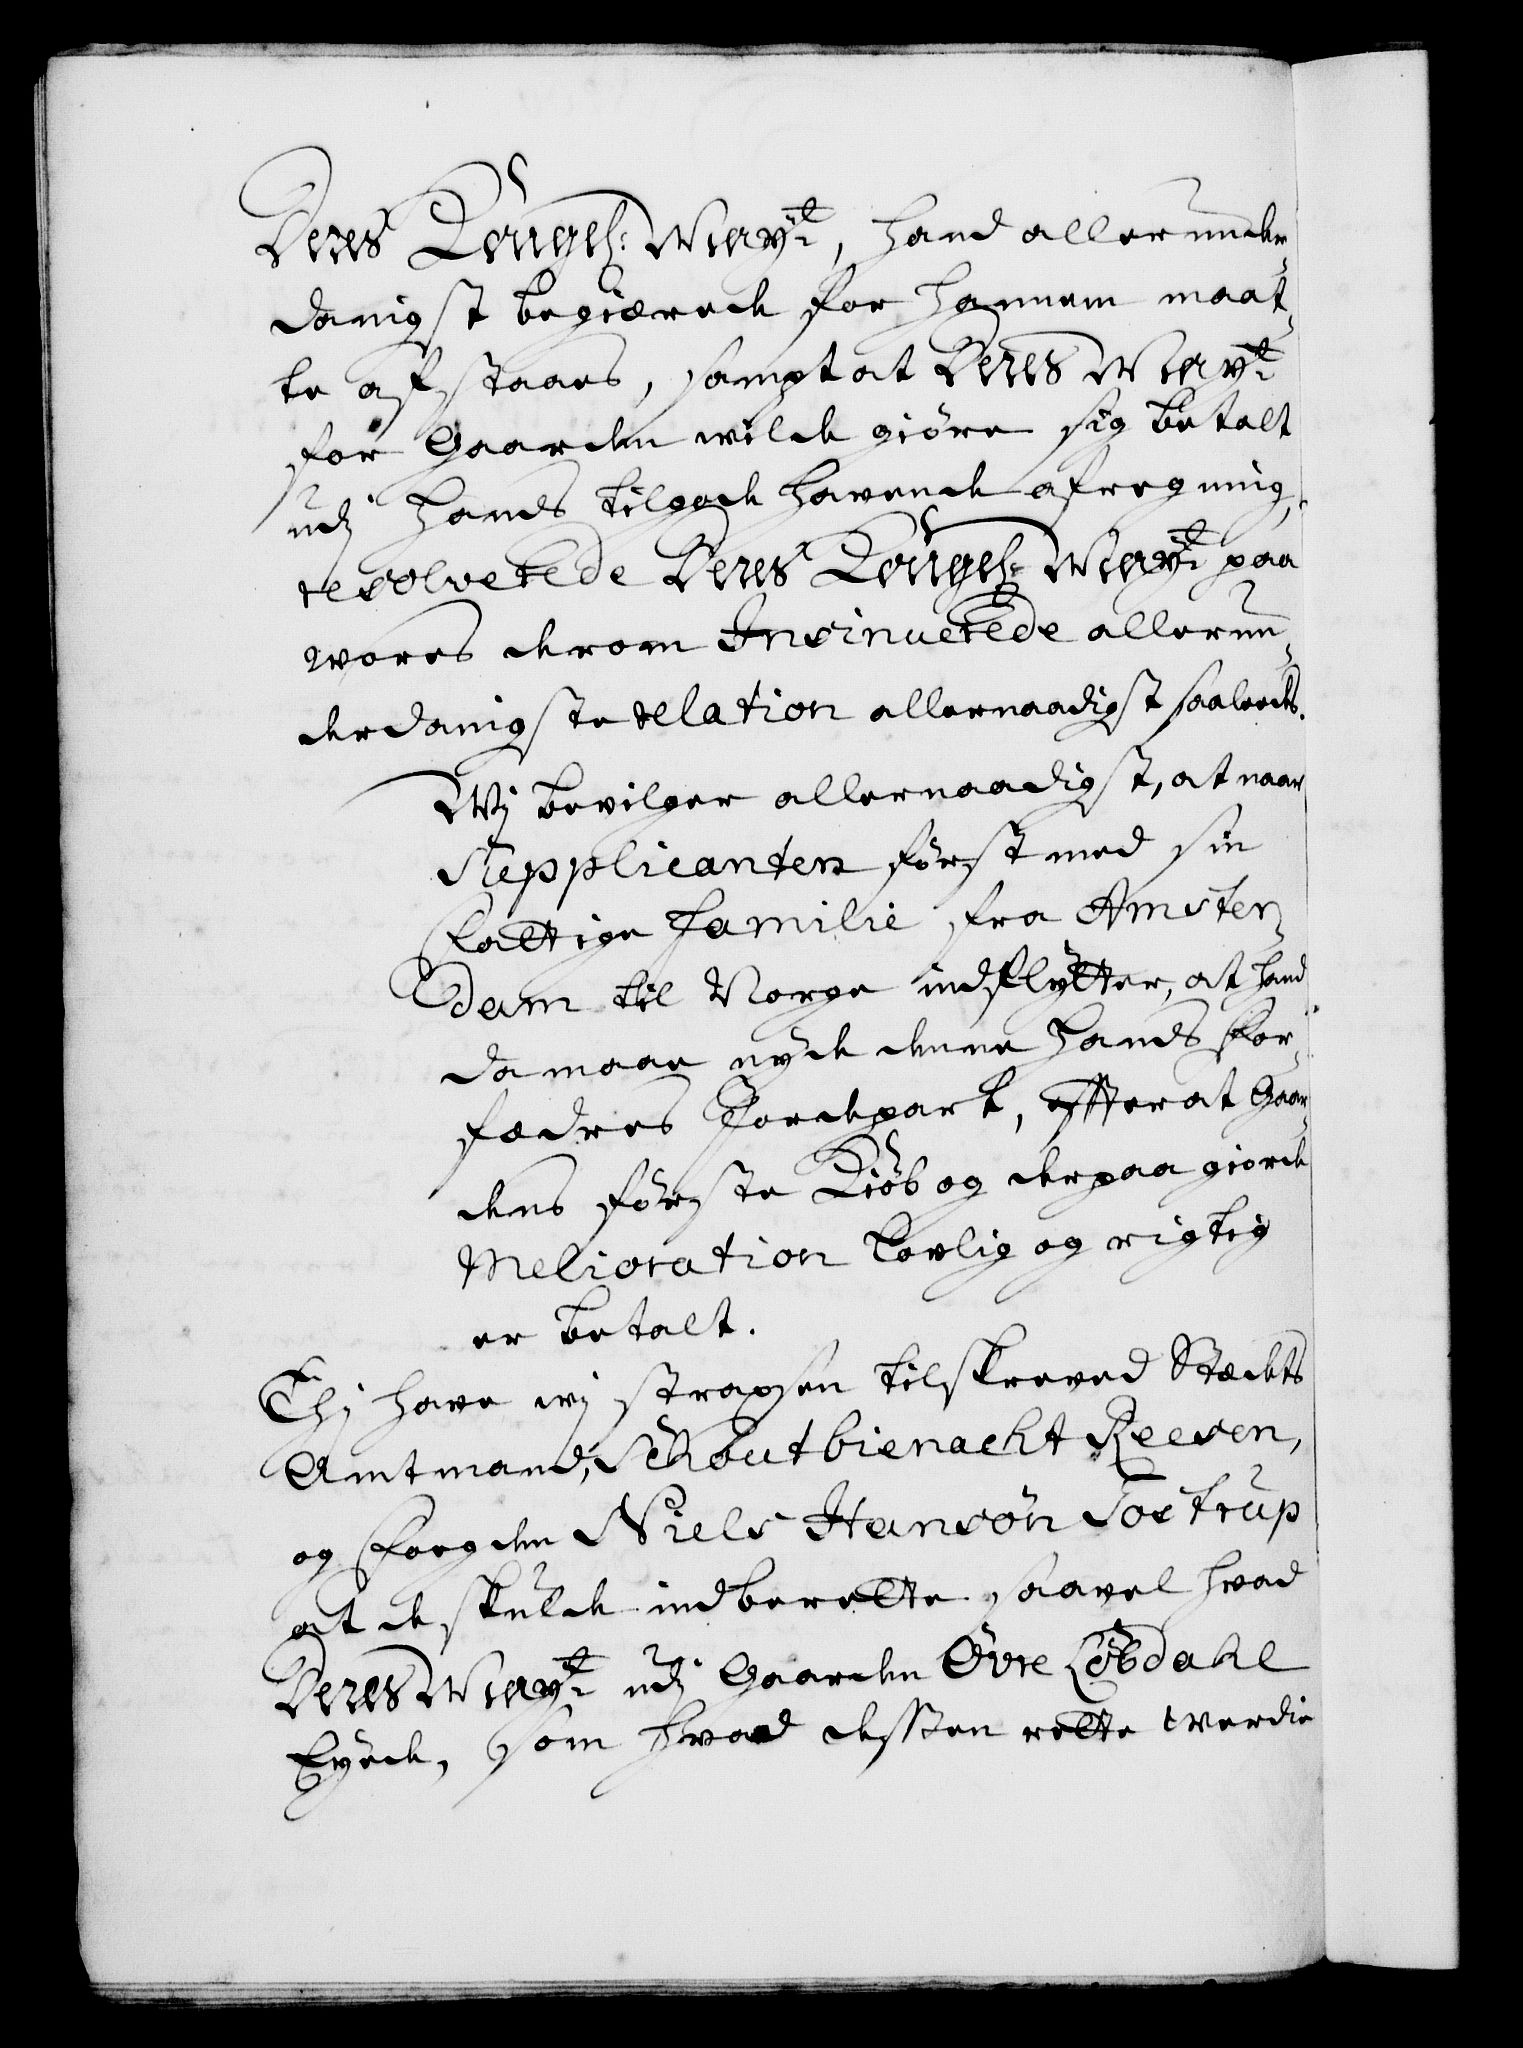 Deres Kongel: Mayᵗ, hand allerunder-
danigst begiærede for hannem maat-
te afstaaes, sampt at Deres Mayᵗ
for Gaarden wilde giöre sig betalt
udj hands tilgode havende afregning,
resolverede Deres Kongel: Mayᵗ paa
wores derom Insinuerede allerun-
derdanigste relation allernaadigst saaledes.
Wj bevilger allernaadigst, at naar
Supplicanten först med sin
fattige Familie fra Amster-
dam til Norge indflytter, at hand
da maae nyde denne hands For-
fædres Jordepart, efter at Gaar-
dens förste Kiöb og derpaa giorde
Melioration lovlig og rigtig
er betalt.
Thj have wj straxsen tilskreved Stædts
Amtmand, Schoutbienacht Reesen,
og Fogden Niels Hansön Tostrup
at de skulde indberette saavel hvad
Deres Mayᵗ udj Gaarden Övre Löbdahl
Eyede, som hvad dessen rette werdie